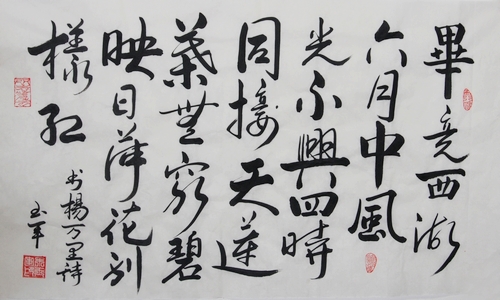 畢竟西湖
六月中風
光不與四時
同接天蓮
葉無窮碧
映日荷花別
樣紅
书楊万里詩
玉军